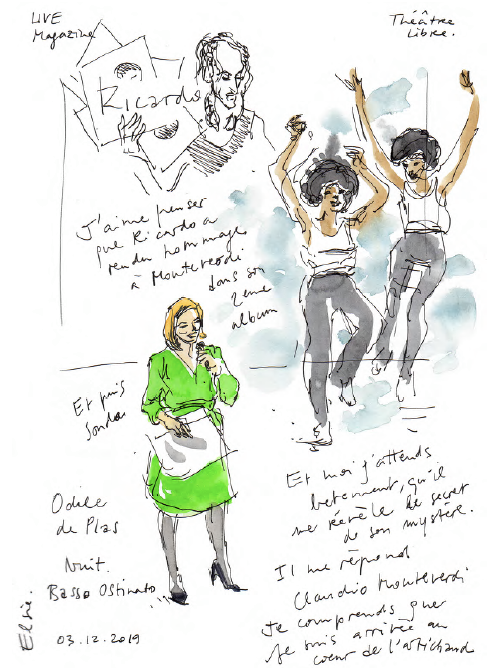 LIVE
Magazine
Théâtre
Libre.
Ricardo
J'aime penser
que Ricardo a
rendu hommage
à Monteverdi
dans son
2ème
album
Et puis
Et moi j'attends
betement, qu'il
me révèle le secret
de son mystère.
Il me répond
Claudio Monteverdi
Je comprends que
Je suis arrivée au
coeur de l'artichaud
Odile
de Plas
Nuit.
Basso Ostinato
Elsie.
03.12.2019